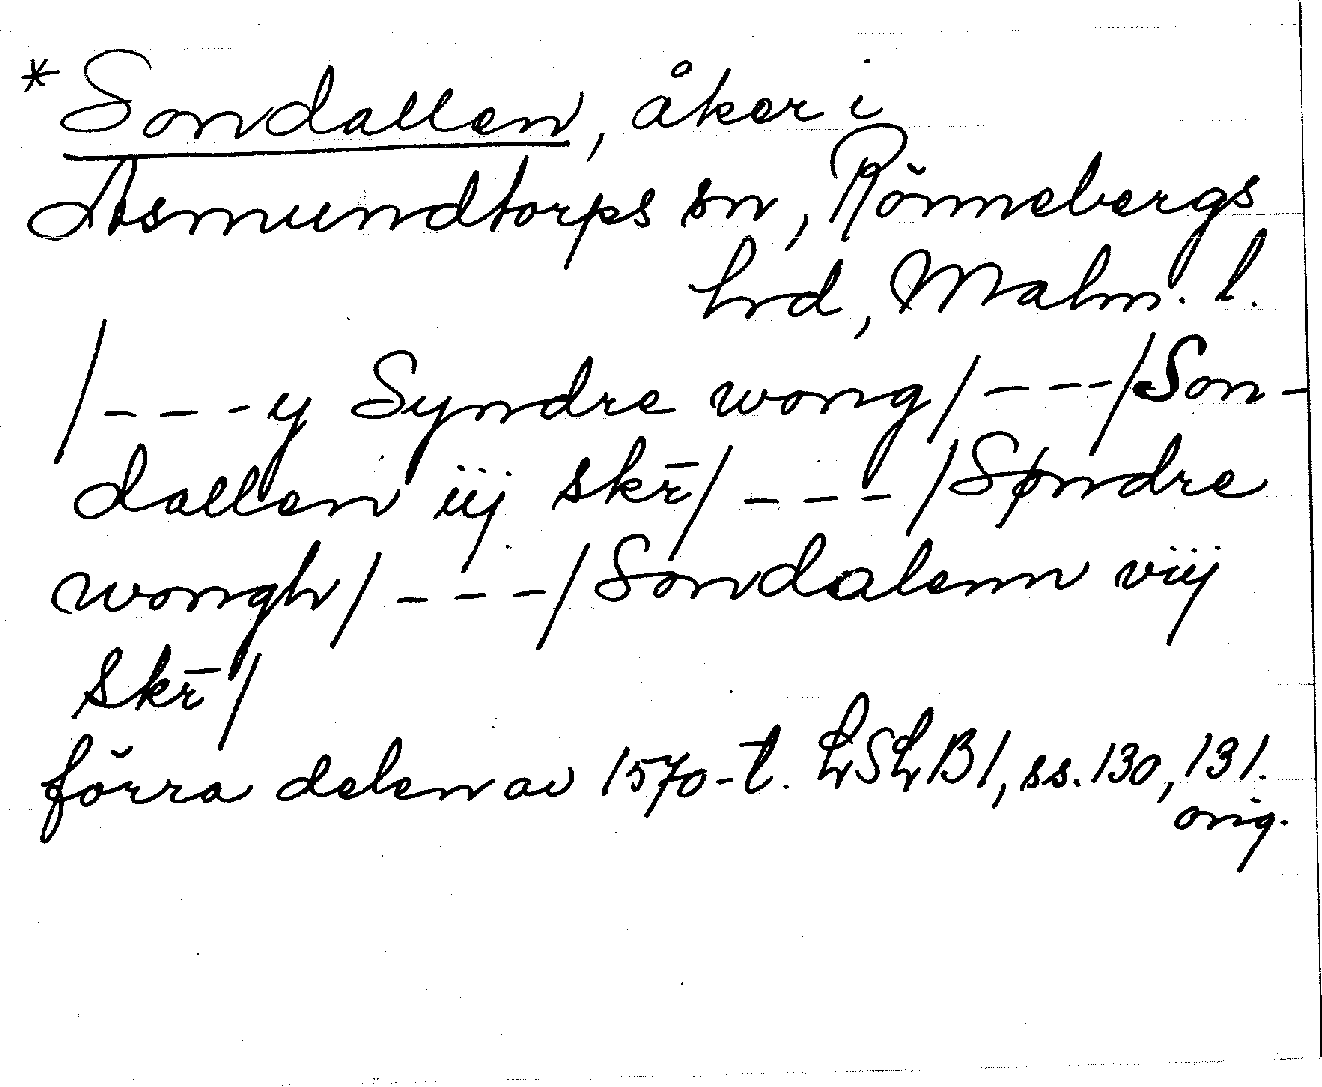 *Sondallen, åker i
Asmundtorps sn, Rönnebergs
hrd, Malm. l.
/---y Syndre wong/---/Son-
dallen iij skr̄/---/Søndre
wongh/---/Sondalenn viij
skr̄/
förra delen av 1570-t. LSLB1, ss. 130, 131.
orig.